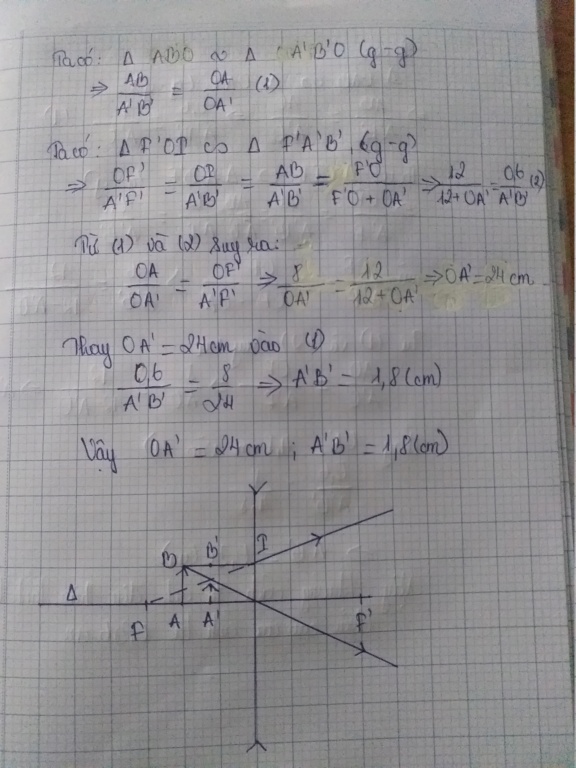 Ta có: Δ ABO ∽ Δ A'B'O (g-g)
⇒ AB/A'B' = OA/OA' (1)
Ta có: Δ F'OI ∽ Δ F'A'B' (g-g)
⇒ OF'/A'F' = OI/A'B' = AB/A'B' = F'O/F'O + OA' ⇒ 12/12+OA' = 0,6/A'B' (2)
Từ (1) và (2) suy ra:
OA/OA' = OF'/A'F' ⇒ 8/OA' = 12/12+OA' ⇒ OA' = 24 cm
Thay OA' = 24 cm vào (1)
0,6/A'B' = 8/24 ⇒ A'B' = 1,8 (cm)
Vậy OA' = 24 cm ; A'B' = 1,8 (cm)
B B' I
Δ F A A' F'